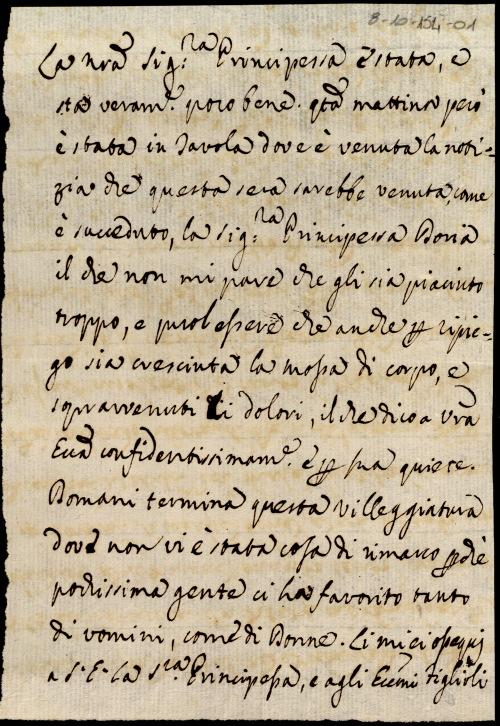 8-10-154-01
La nrã Sig:ra Principessa è stata, e
sta veram.e poco bene. qtã mattina però
è stata in Tavola dove è venuta la noti-
zia che questa sera sarebbe venuta, come
è succeduto, la Sig:ra Principessa Doria
il che non mi pare che gli sia piaciuto
troppo, e puol essere che anche p ripie-
go sia cresciuta la mossa di corpo, e
sopravvenuti li dolori, il che dico a Vrã
Eccã confidentissimam.e e p sua quiete.
Domani termina questa villeggiatura
dove non vi è stata cosa di rimarco pchè
pochissima gente ci ha favorito tanto
di uomini, come di Donne. Li miei ossequj
a S. E. La S.ra Principessa, e agli Eccmi Figlioli